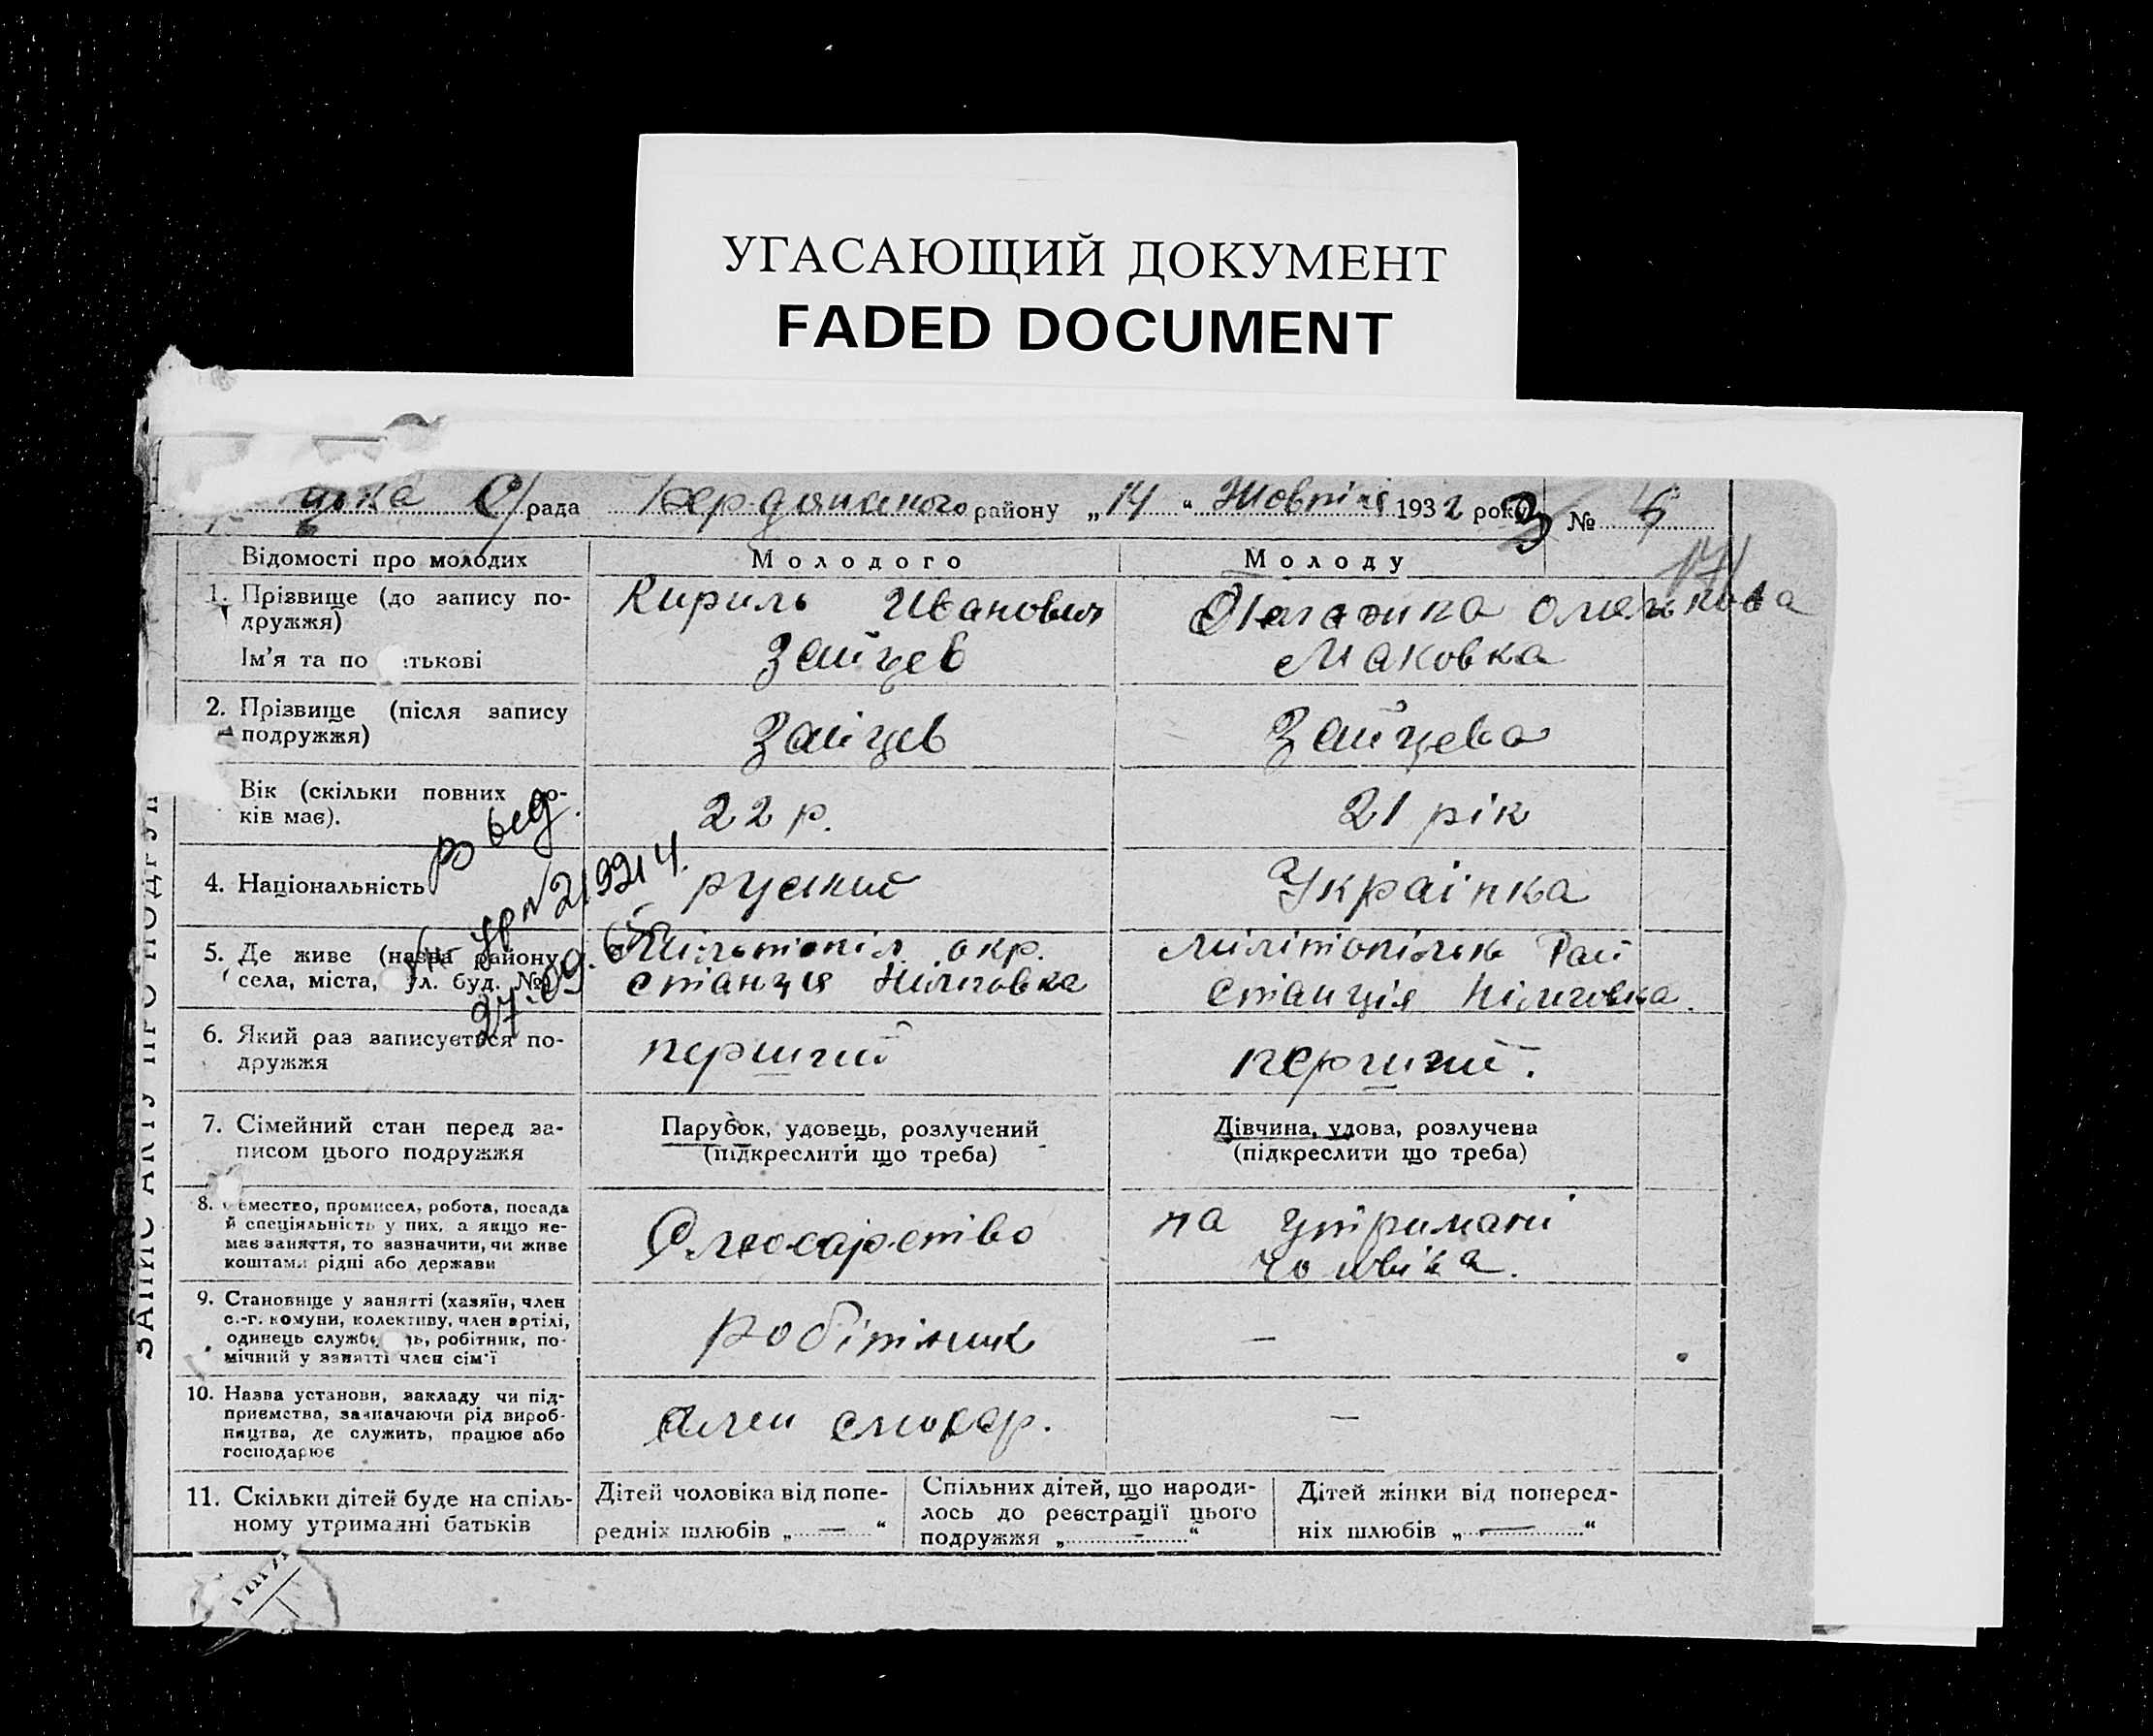 УГАСАЮЩИЙ ДОКУМЕНТ
FADED DOCUMENT
ська С/рада Бердянського району „14“ Жовтня 1932 року № 5
Відомості про молодих Молодого Молоду
1. Прізвище (до запису по-
дружжя)
Ім’я та по атькові
Кириль Иванович
Зайцев
Омельковa
Маковка
2. Прізвище (після запису
подружжя)
Зайцев
Зайцева
Вік (скільки повних ро-
ків має).
22 р.
21 рік
4. Національність
руский
Українка
5. Де живе (назва району
села, міста, ул. буд. №)
Мільтопіл окр.
станция Нільговка
Мілітопільк Рай
станція Нільговка.
розвед.
№ 219214.
27.09.
6. Який раз записується по-
дружжя
перший
перший.
7. Сімейний стан перед за-
писом цього подружжя
Парубок, удовець, розлучений
(підкреслити що треба)
Дівчина, удова, розлучена
(підкреслити що треба)
8. емество, промисел, робота, посада
й спеціяльність у них, а якщо не-
має заняття, то зазначити, чи живе
коштами рідні або держави
Слюсарство
на утримані
чоловіка.
9. Становище у занятті (хазяїн, член
с.-г. комуни, колективу, член артілі,
одинець службо ь, робітник, по-
мічний у занятті член сім’ї
робітник
—
10. Назва установи, закладу чи під-
приємства, зазначаючи рід вироб-
ництва, де служить, працює або
господарює
слюсар.
—
11. Скільки дітей буде на спіль-
ному утриманні батьків
Дітей чоловіка від попе-
редніх шлюбів „—“
Спільних дітей, що народи-
лось до реєстрації цього
подружжя „—“
Дітей жінки від поперед-
ніх шлюбів „—“
ЗАПИС АКТУ ПРО ПОДРУ